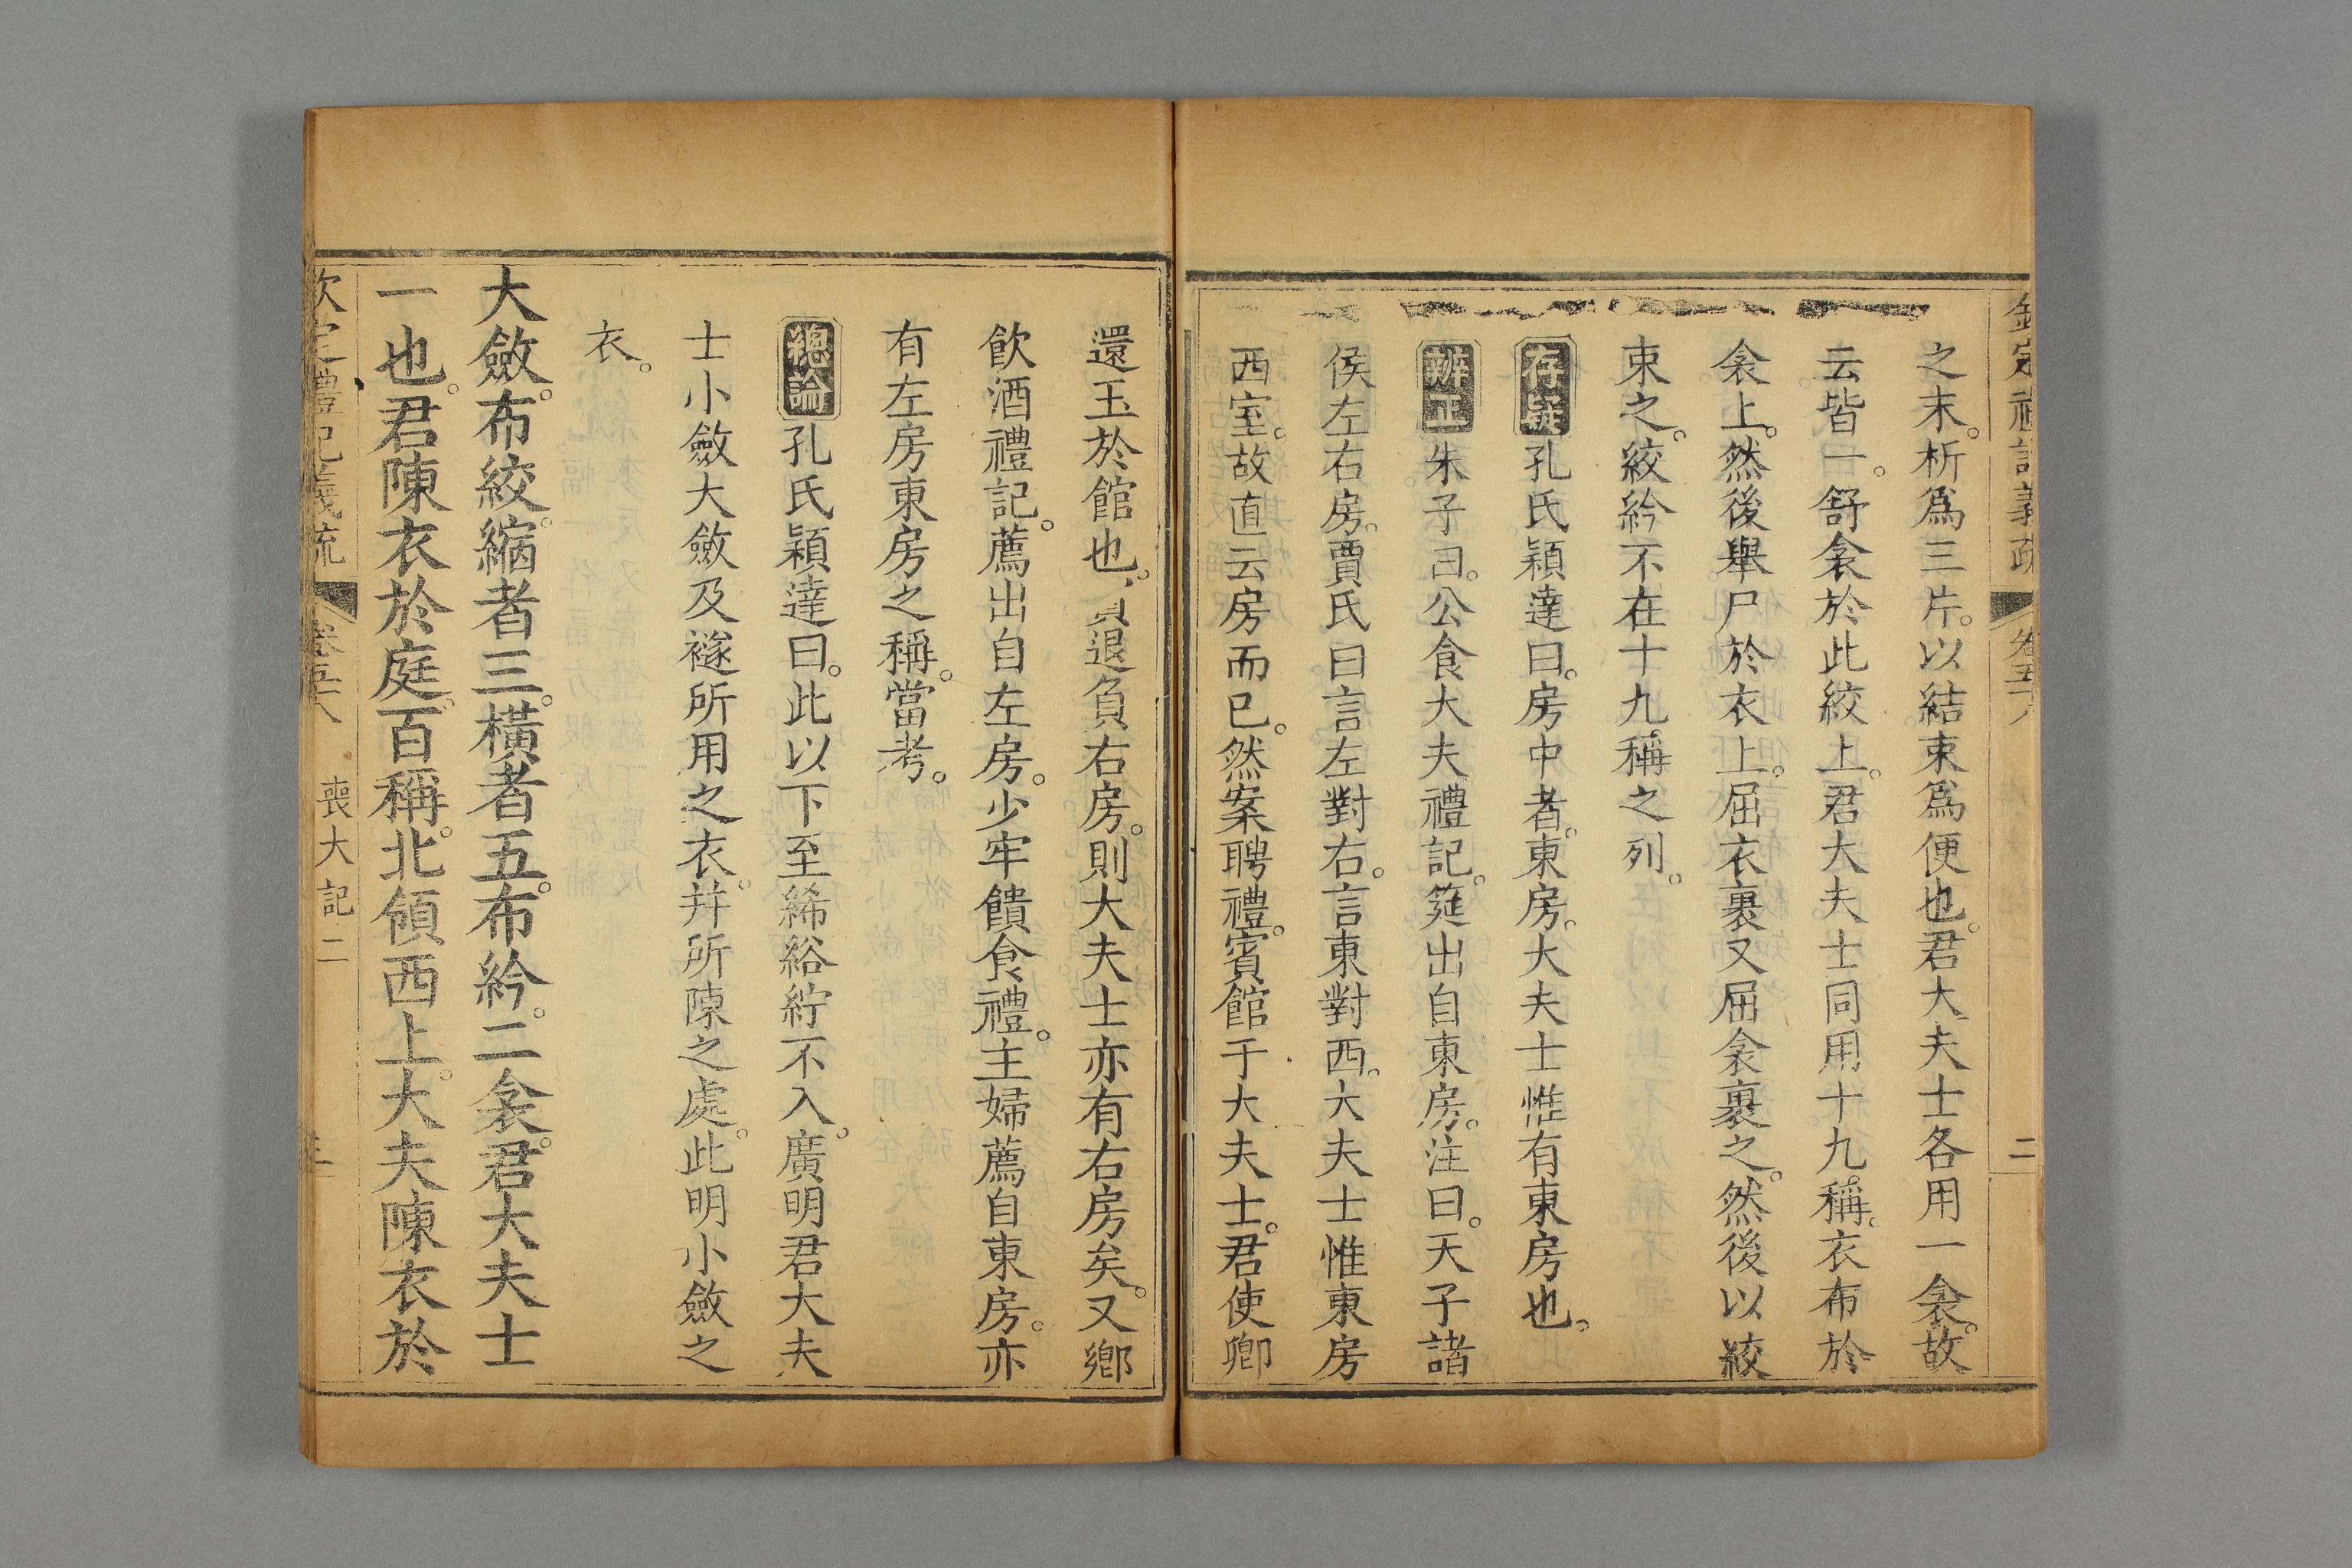 欽定禮記義疏 卷五十八 二
之末。析爲三片。以結束爲便也。君大夫士各用一衾。故
云皆一。舒衾於此絞上。君大夫士同用十九稱。衣布於
衾上。然後舉尸於衣上。屈衣裹又屈衾裹之。然後以絞
束之。絞紟不在十九稱之列。
存疑孔氏穎達曰。房中者。東房。大夫士惟有東房也。
辨正朱子曰。公食大夫禮記。筵出自東房。注曰。天子諸
侯左右房。賈氏曰言左對右。言東對西。大夫士惟東房
西室。故直云房而已。然案聘禮。賓館于大夫士。君使卿
還玉於館也。賓退負右房。則大夫士亦有右房矣。又鄉
飲酒禮記。薦出自左房。少牢饋食禮。主婦薦自東房。亦
有左房東房之稱。當考。
總論孔氏穎達曰。此以下至絺綌紵不入。廣明君大夫
士小斂大斂及襚所用之衣。幷所陳之處。此明小斂之
衣。
大斂。布絞。縮者三。橫者五。布紟。二衾。君大夫士
一也。君陳衣於庭。百稱。北領西上。大夫陳衣於
欽定禮記義疏 卷五十八 喪大記二